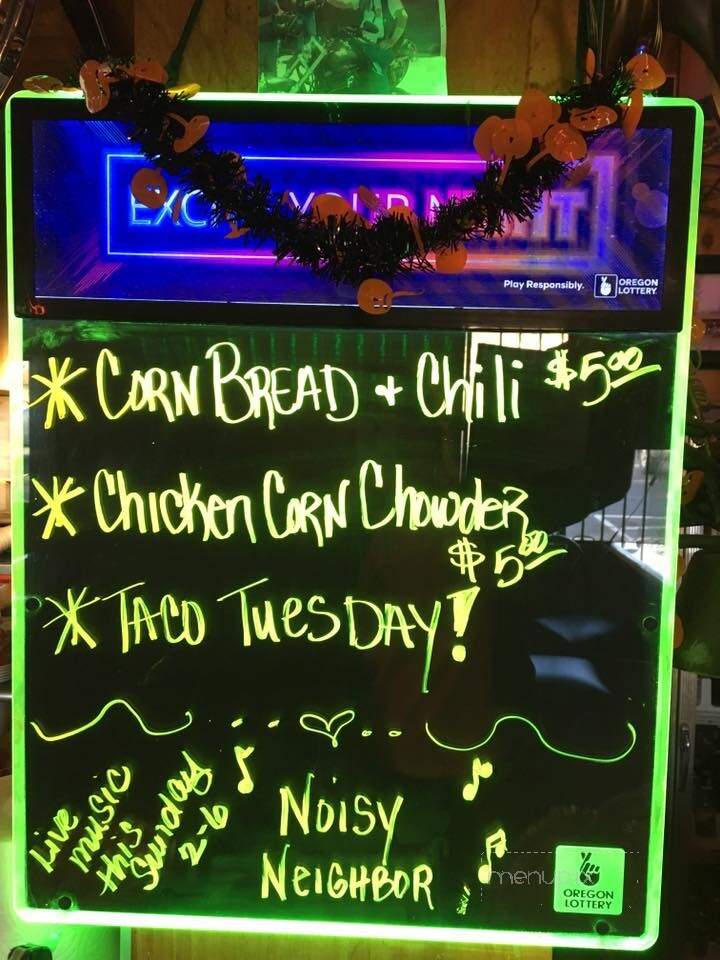 EXC YOUR N IT
Play Responsibly.
OREGON
LOTTERY
* CORN BREAD + Chili $5.00
* Chicken CORN Chowder
$5.00
* TACO TUESDAY!
Live
music
this
Sunday
2-6
NOISY
NEIGHBOR
menu
OREGON
LOTTERY